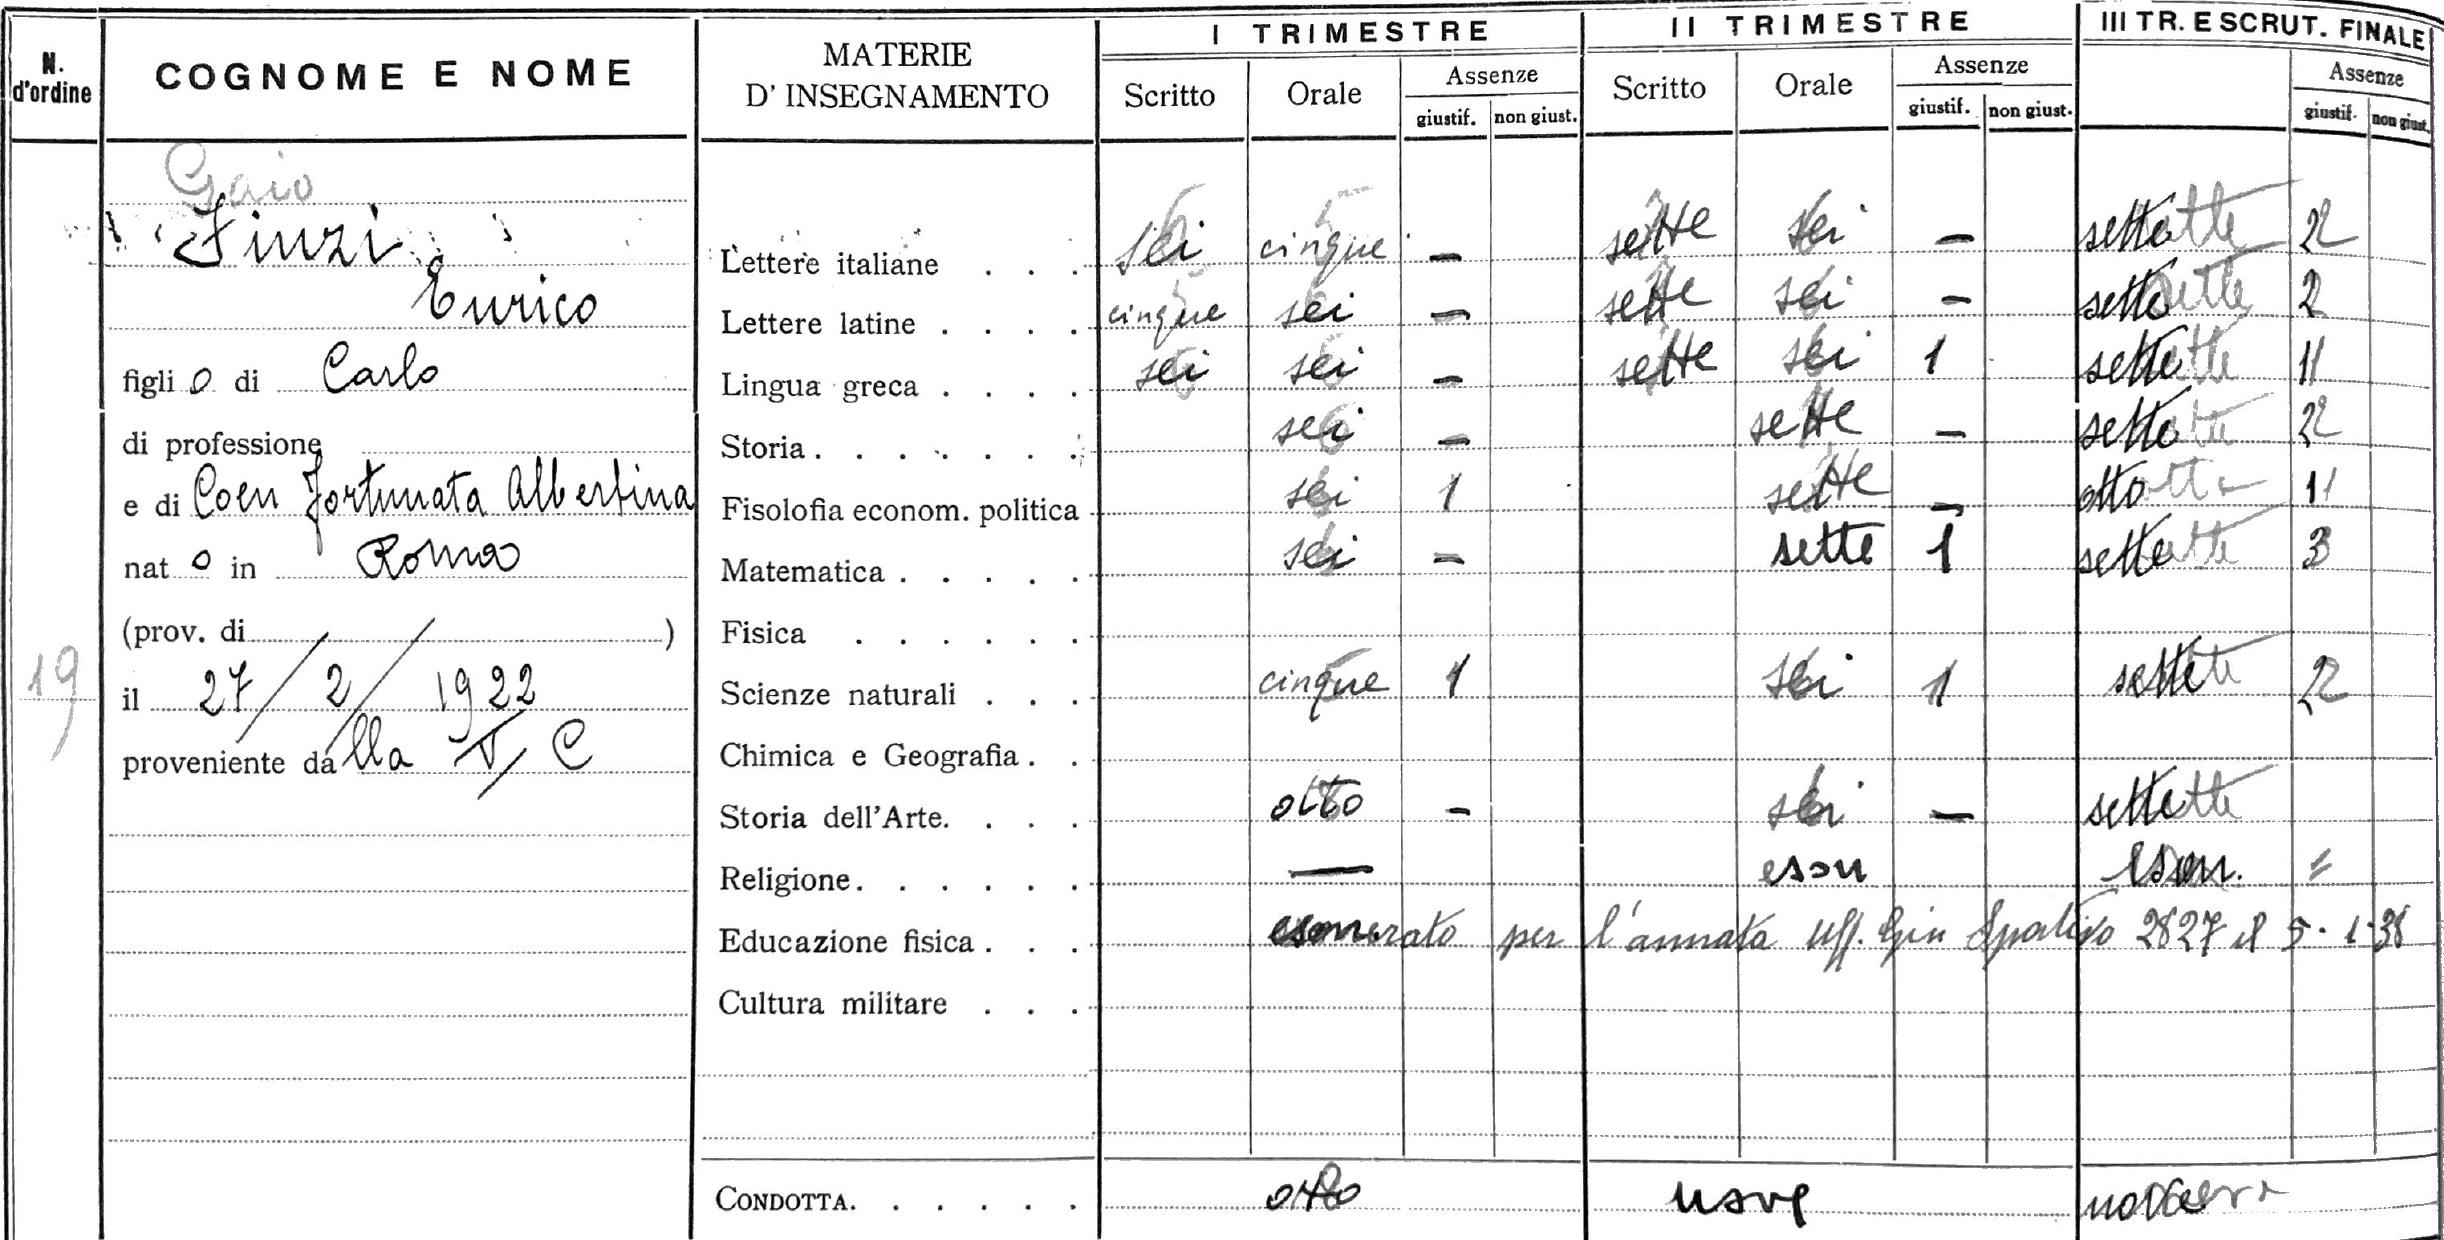 N. d'ordine COGNOME E NOME MATERIE D' INSEGNAMENTO I TRIMESTRE II TRIMESTRE III TR. E SCRUT. FINALE
Scritto Orale Assenze Scritto Orale Assenze Assenze
giustif. non giust. giustif. non giust. giustif. non giust.
19
Gaio
Finzi
Enrico
figlio di Carlo
di professione
e di Coen Fortunata Albertina
nato in Roma
(prov. di )
il 27/2/1922
proveniente dalla V C
Lettere italiane . . . sei cinque — sette sei — sette 2
Lettere latine . . . . cinque sei — sette sei — sette 2
Lingua greca . . . . sei sei — sette sei 1 sette 11
Storia . . . . . . . sei — sette — sette 2
Fisolofia econom. politica sei 1 sette — otto 11
Matematica . . . . . sei — sette 1 sette 3
Fisica . . . . . .
Scienze naturali . . . cinque 1 sei 1 sette 2
Chimica e Geografia . .
Storia dell'Arte. . . . otto — sei — sette
Religione. . . . . . — eson eson. =
Educazione fisica . . . esonerato per l'annata Uff. Gin Sportivo 2827 il 5-1-38
Cultura militare . . .
CONDOTTA. . . . . . otto nove nove